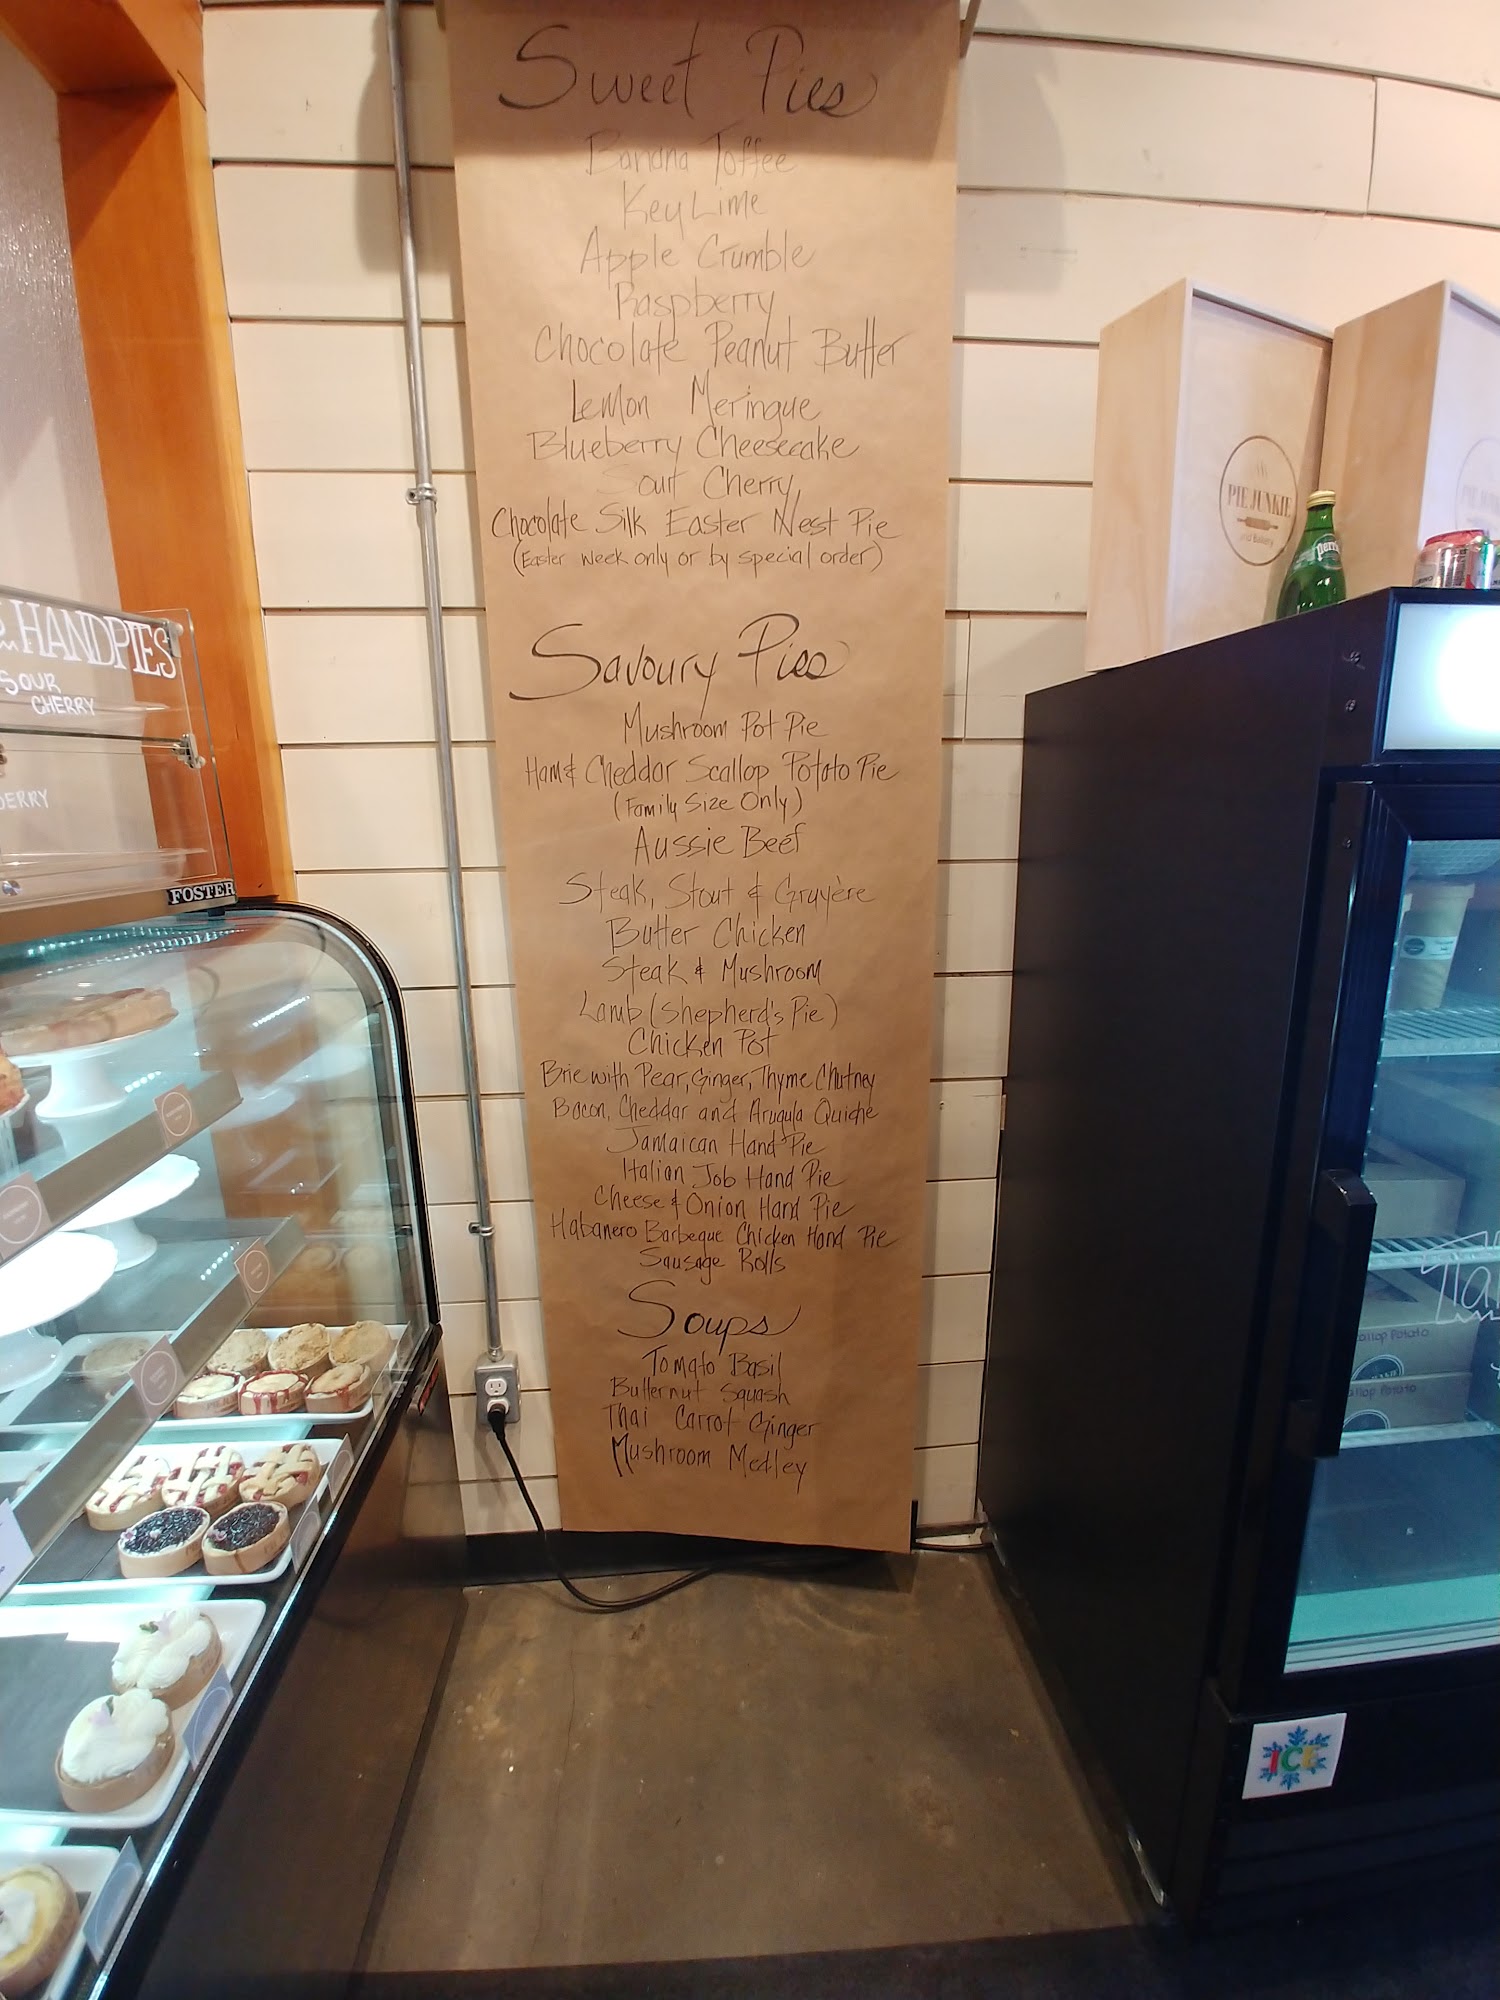 Sweet Pies
Banana Toffee
Key Lime
Apple Crumble
Raspberry
Chocolate Peanut Butter
Lemon Meringue
Blueberry Cheesecake
Sour Cherry
Chocolate Silk Easter Nest Pie
(Easter week only or by special order)
Savoury Pies
Mushroom Pot Pie
Ham & Cheddar Scallop Potato Pie
(Family Size Only)
Aussie Beef
Steak, Stout & Gruyère
Butter Chicken
Steak & Mushroom
Lamb (Shepherd's Pie)
Chicken Pot
Brie with Pear, Ginger, Thyme Chutney
Bacon, Cheddar and Arugula Quiche
Jamaican Hand Pie
Italian Job Hand Pie
Cheese & Onion Hand Pie
Habanero Barbeque Chicken Hand Pie
Sausage Rolls
Soups
Tomato Basil
Butternut Squash
Thai Carrot Ginger
Mushroom Medley
HANDPIES
SOUR
CHERRY
FOSTER
PIE JUNKIE
and Bakery
perrier
Potato
Potato
ICE